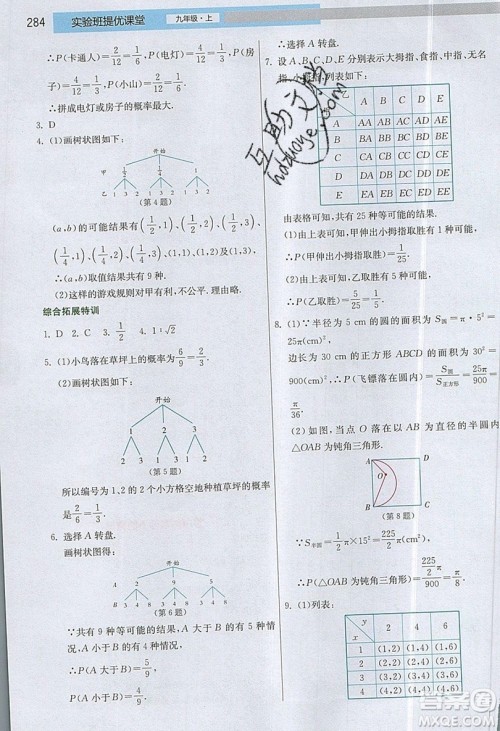 284 实验班提优课堂 九年级·上
∴P(卡通人)=2/6=1/3,P(电灯)=2/6=1/3,P(房
子)=2/6=1/3,P(小山)=
∴拼成电灯或房子的概率最大.
3. D
4. (1)画树状图如下:
开始
甲
乙 1 2 3 1 2 3 1 2 3
(第4题)
(a,b)的可能结果有(1/2,1),(1/2,2),(1/2,3),
(1/4,1),(1/4,2),(1/4,3),(1,1),(1,2)及(1,3)
∴(a,b)取值结果共有9种.
(2)这样的游戏规则对甲有利,不公平.
综合拓展特训
1. D 2. C 3. 1/2 4. 1:√2
5. (1)小鸟落在草坪上的概率为6/9=2/3.
(2)画树状图如下:
开始
1 2 3
2 3 1 3 1 2
(第5题)
所以编号为1、2的2个小方格空地种植草坪的概率
是2/6=1/3.
6. 选择A转盘.
画树状图得:
开始
A
B
(第6题)
∵共有9种等可能的结果,A大于B的有5
种,A小于B的有4种,
∴P(A大于B)=5/9,
P(A小于B)=4/9.
∴选择A转盘.
7. 设A、B、C、D、E分别表示大拇指、食指、中指、无名
指、小拇指,列表如下:
A B C D E
A AA AB AC AD AE
B BA BB BC BD BE
C CA CB CC CD CE
D DA DB DC DD DE
E EA EB EC ED EE
由表格可知,共有25种等可能的结果.
(1)由上表可知,甲伸出小拇指取胜有1种可能.
∴P(甲伸出小拇指取胜)=1/25.
(2)由上表可知,乙取胜有5种可能.
∴P(乙取胜)=5/25=1/5.
8. (1)∵半径为5 cm的圆的面积为S圆=π·5²=
25π(cm)²,
边长为30 cm的正方形ABCD的面积为S正方形=30²=
900(cm)²,∴P(飞镖落在圆内)=S圆/S正方形=25π/900=
π/36.
(2)如图,当点O落在以AB为直径的半圆内
△OAB为钝角三角形.
A D
O
B C
(第8题)
∵S半圆=1/2π×15²=225/2π,
∴P(△OAB为钝角三角形)=225/2π/900=π/8.
9. (1)列表:
x
y 2 4 6
1 (1,2) (1,4) (1,6)
2 (2,2) (2,4) (2,6)
3 (3,2) (3,4) (3,6)
4 (4,2) (4,4) (4,6)
互助文档
hdzuoye.com
答案圈
MXQE.COM